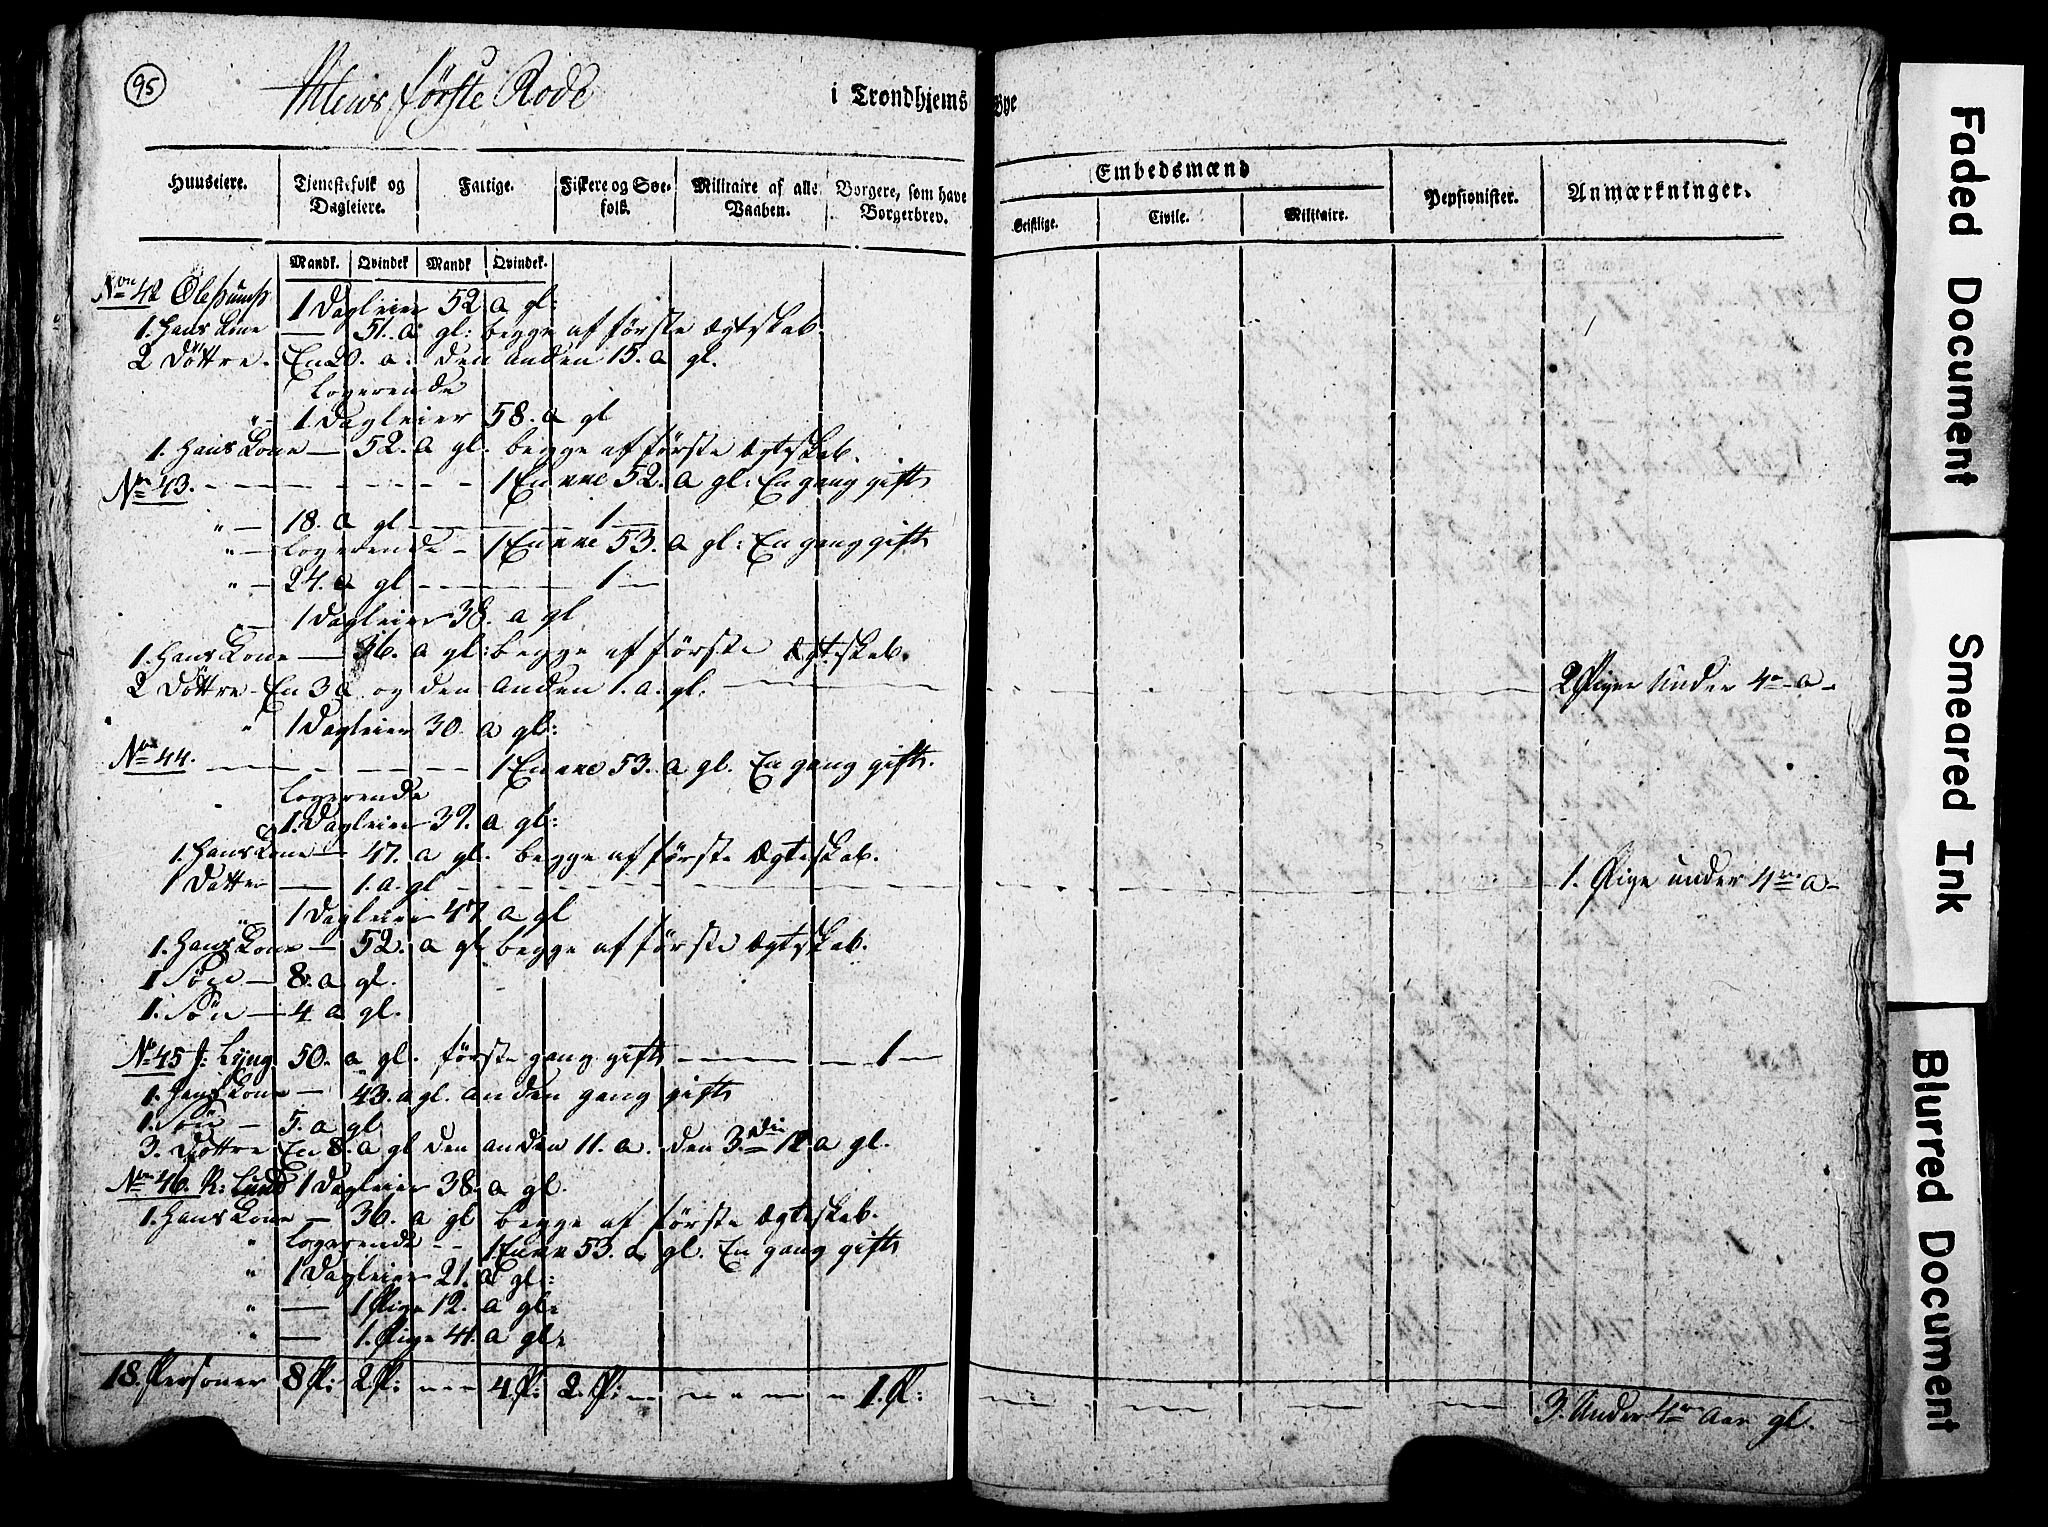 95
Ihlens første Rode i Trondhjems Bye
Embedsmænd
Huuseiere. Tjenestefolk og Dagleiere. Fattige. Fiskere og Søe- folk. Militaire af alle Vaaben. Borgere, som have Borgerbrev. Geistlige. Civile. Militaire. Pensionister. Anmærkninger.
Mandk. Qvindek. Mandk. Qvindek.
No 42 1 Dagleier 52 a gl:
1. Hans Kone — 51. a gl: begge af første Ægteskab
2 Døttre. En 20. a. den anden 15. a gl.
Logerende
" - 1 Dagleier 58. a gl
1. Hans Kone — 52. a gl. begge af første Ægteskab.
No 43. - - - 1 Enke 52. a gl: En gang gift
" — 18. a gl - - - 1 —
" — Logerende - 1 Enke 53. a gl: En gang gift
" — 24. a gl - - - 1 —
" — 1 Dagleier 38. a gl
1. Hans Kone — 36. a gl: begge af første Ægteskab.
2 Døttre - En 3 a og den anden 1. a. gl. - - - 2 Piger Under 4re a -
" 1 Dagleier 30. a gl:
No 44. - - - 1 Enke 53. a gl. En gang gift.
Logerende
1. Dagleier 39. a gl:
1. Hans Kone — 47. a gl. begge af første Ægteskab.
1 Datter — 1. a. gl - - - 1. Pige under 4re a -
" 1 Dagleier 47 a gl
1. Hans Kone — 52. a gl. begge af første Ægteskab.
1 Søn — 8. a gl.
1. Søn — 4 a gl.
No 45 J: Lyng. 50. a gl. første gang gift - - - 1 —
1. Hans Kone — 43. a gl. anden gang gift
1. Søn — 5. a gl
3. Døttre En 8. a gl den anden 11. a. den 3die 12 a gl.
No 46. R: Lund 1 Dagleier 38. a gl.
1. Hans Kone — 36. a gl begge af første Ægteskab.
" Logerende - - 1 Enke 53. a gl. En gang gift
" 1 Dagleier 21. a gl:
" — 1 Pige 12. a gl:
" — 1. Pige 41. a gl:
18. Personer 8 P: 2 P: - - - 4 P: 2. P: - - - 1. P: - - - 3. Under 4re Aar gl.
Faded Document
Smeared Ink
Blurred Document